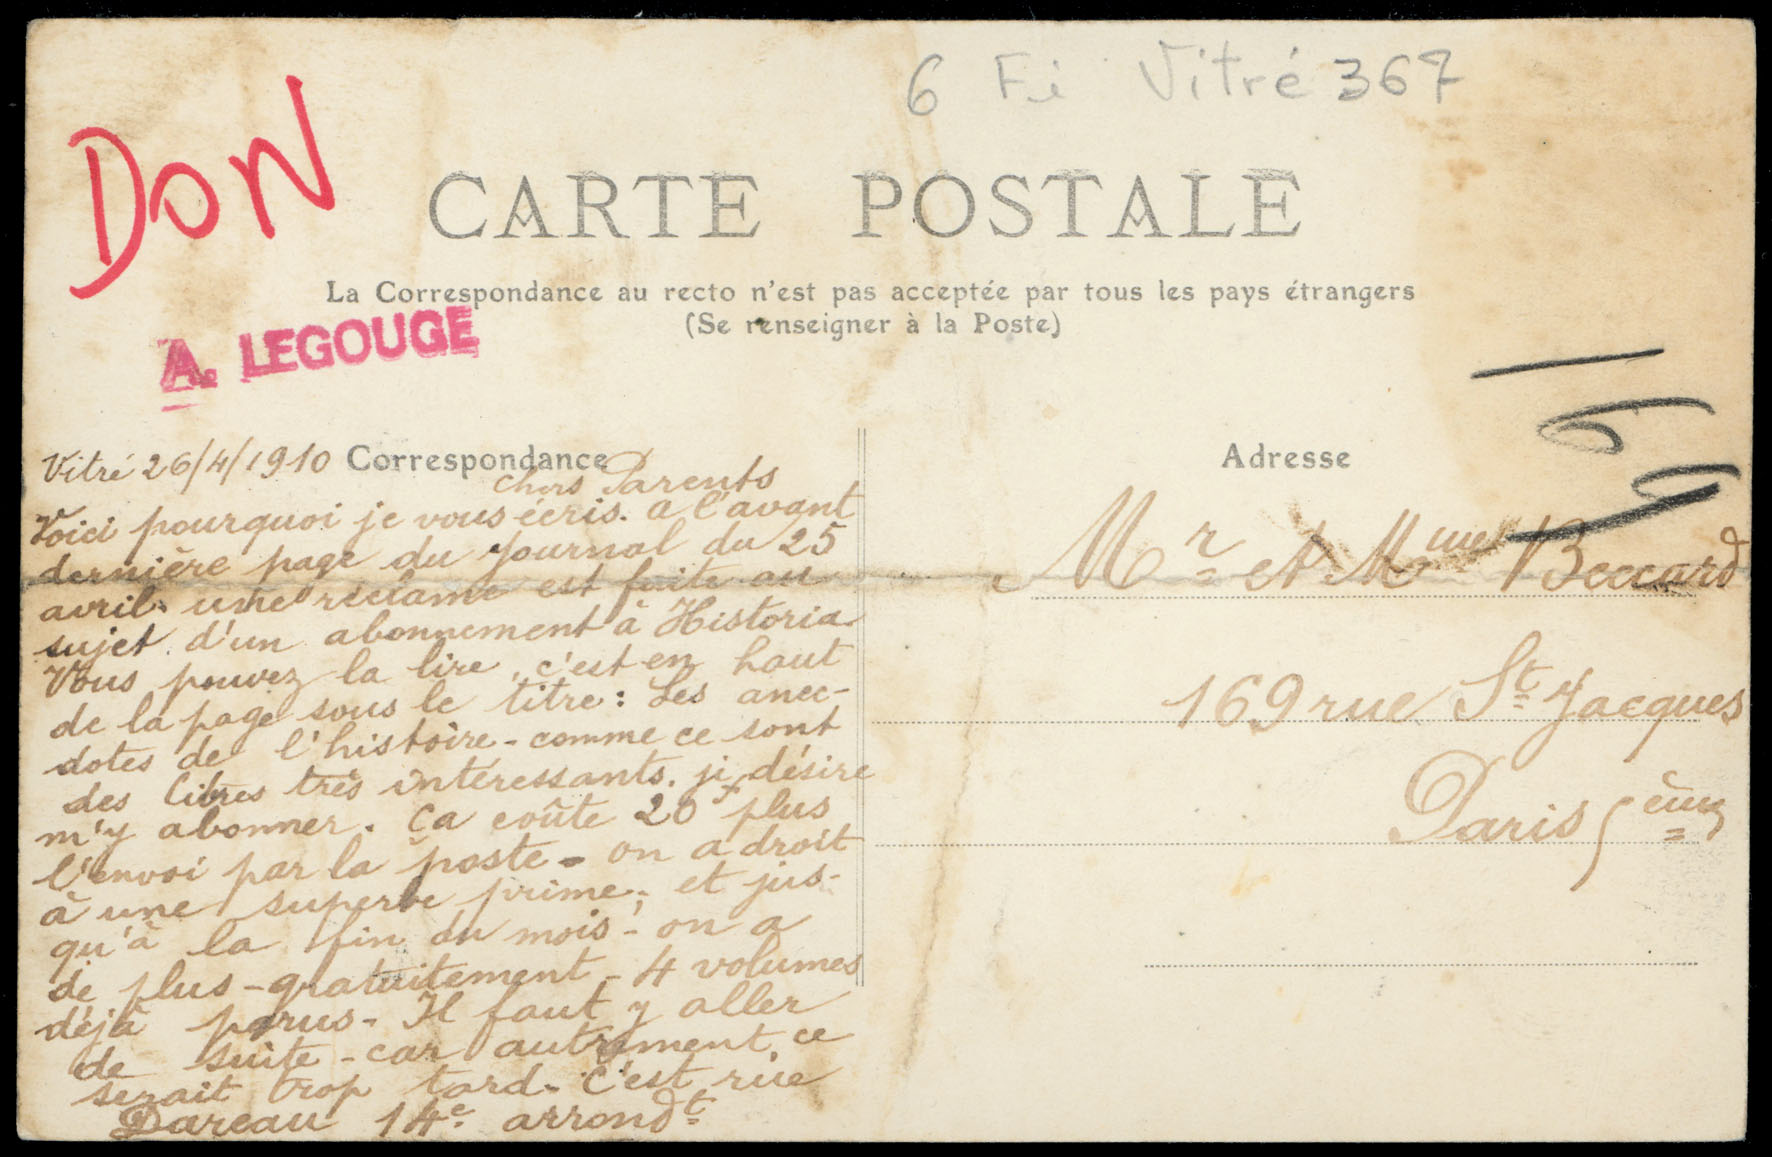 6 Fi Vitré 367
DON
CARTE POSTALE
La Correspondance au recto n'est pas acceptée par tous les pays étrangers
(Se renseigner à la Poste)
A. LEGOUGE
Vitré 26/4/1910 Correspondance
Chers Parents
Voici pourquoi je vous écris. a l'avant
dernière page du Journal du 25
avril une réclame est faite au
sujet d'un abonnement à Historia
Vous pouvez la lire, c'est en haut
de la page sous le titre : Les anec-
dotes de l'histoire - comme ce sont
des livres très intéressants. je désire
m'y abonner. Ça coûte 20F plus
l'envoi par la poste - on a droit
à une superbe prime ; et jus-
qu'à la fin du mois - on a
de plus - gratuitement - 4 volumes
déjà parus - Il faut y aller
de suite - car autrement, ce
serait trop tard - C'est rue
Dareau 14e arrondt
Adresse
169
Mr et Mme Beccard
169 rue St Jacques
Paris 5ème